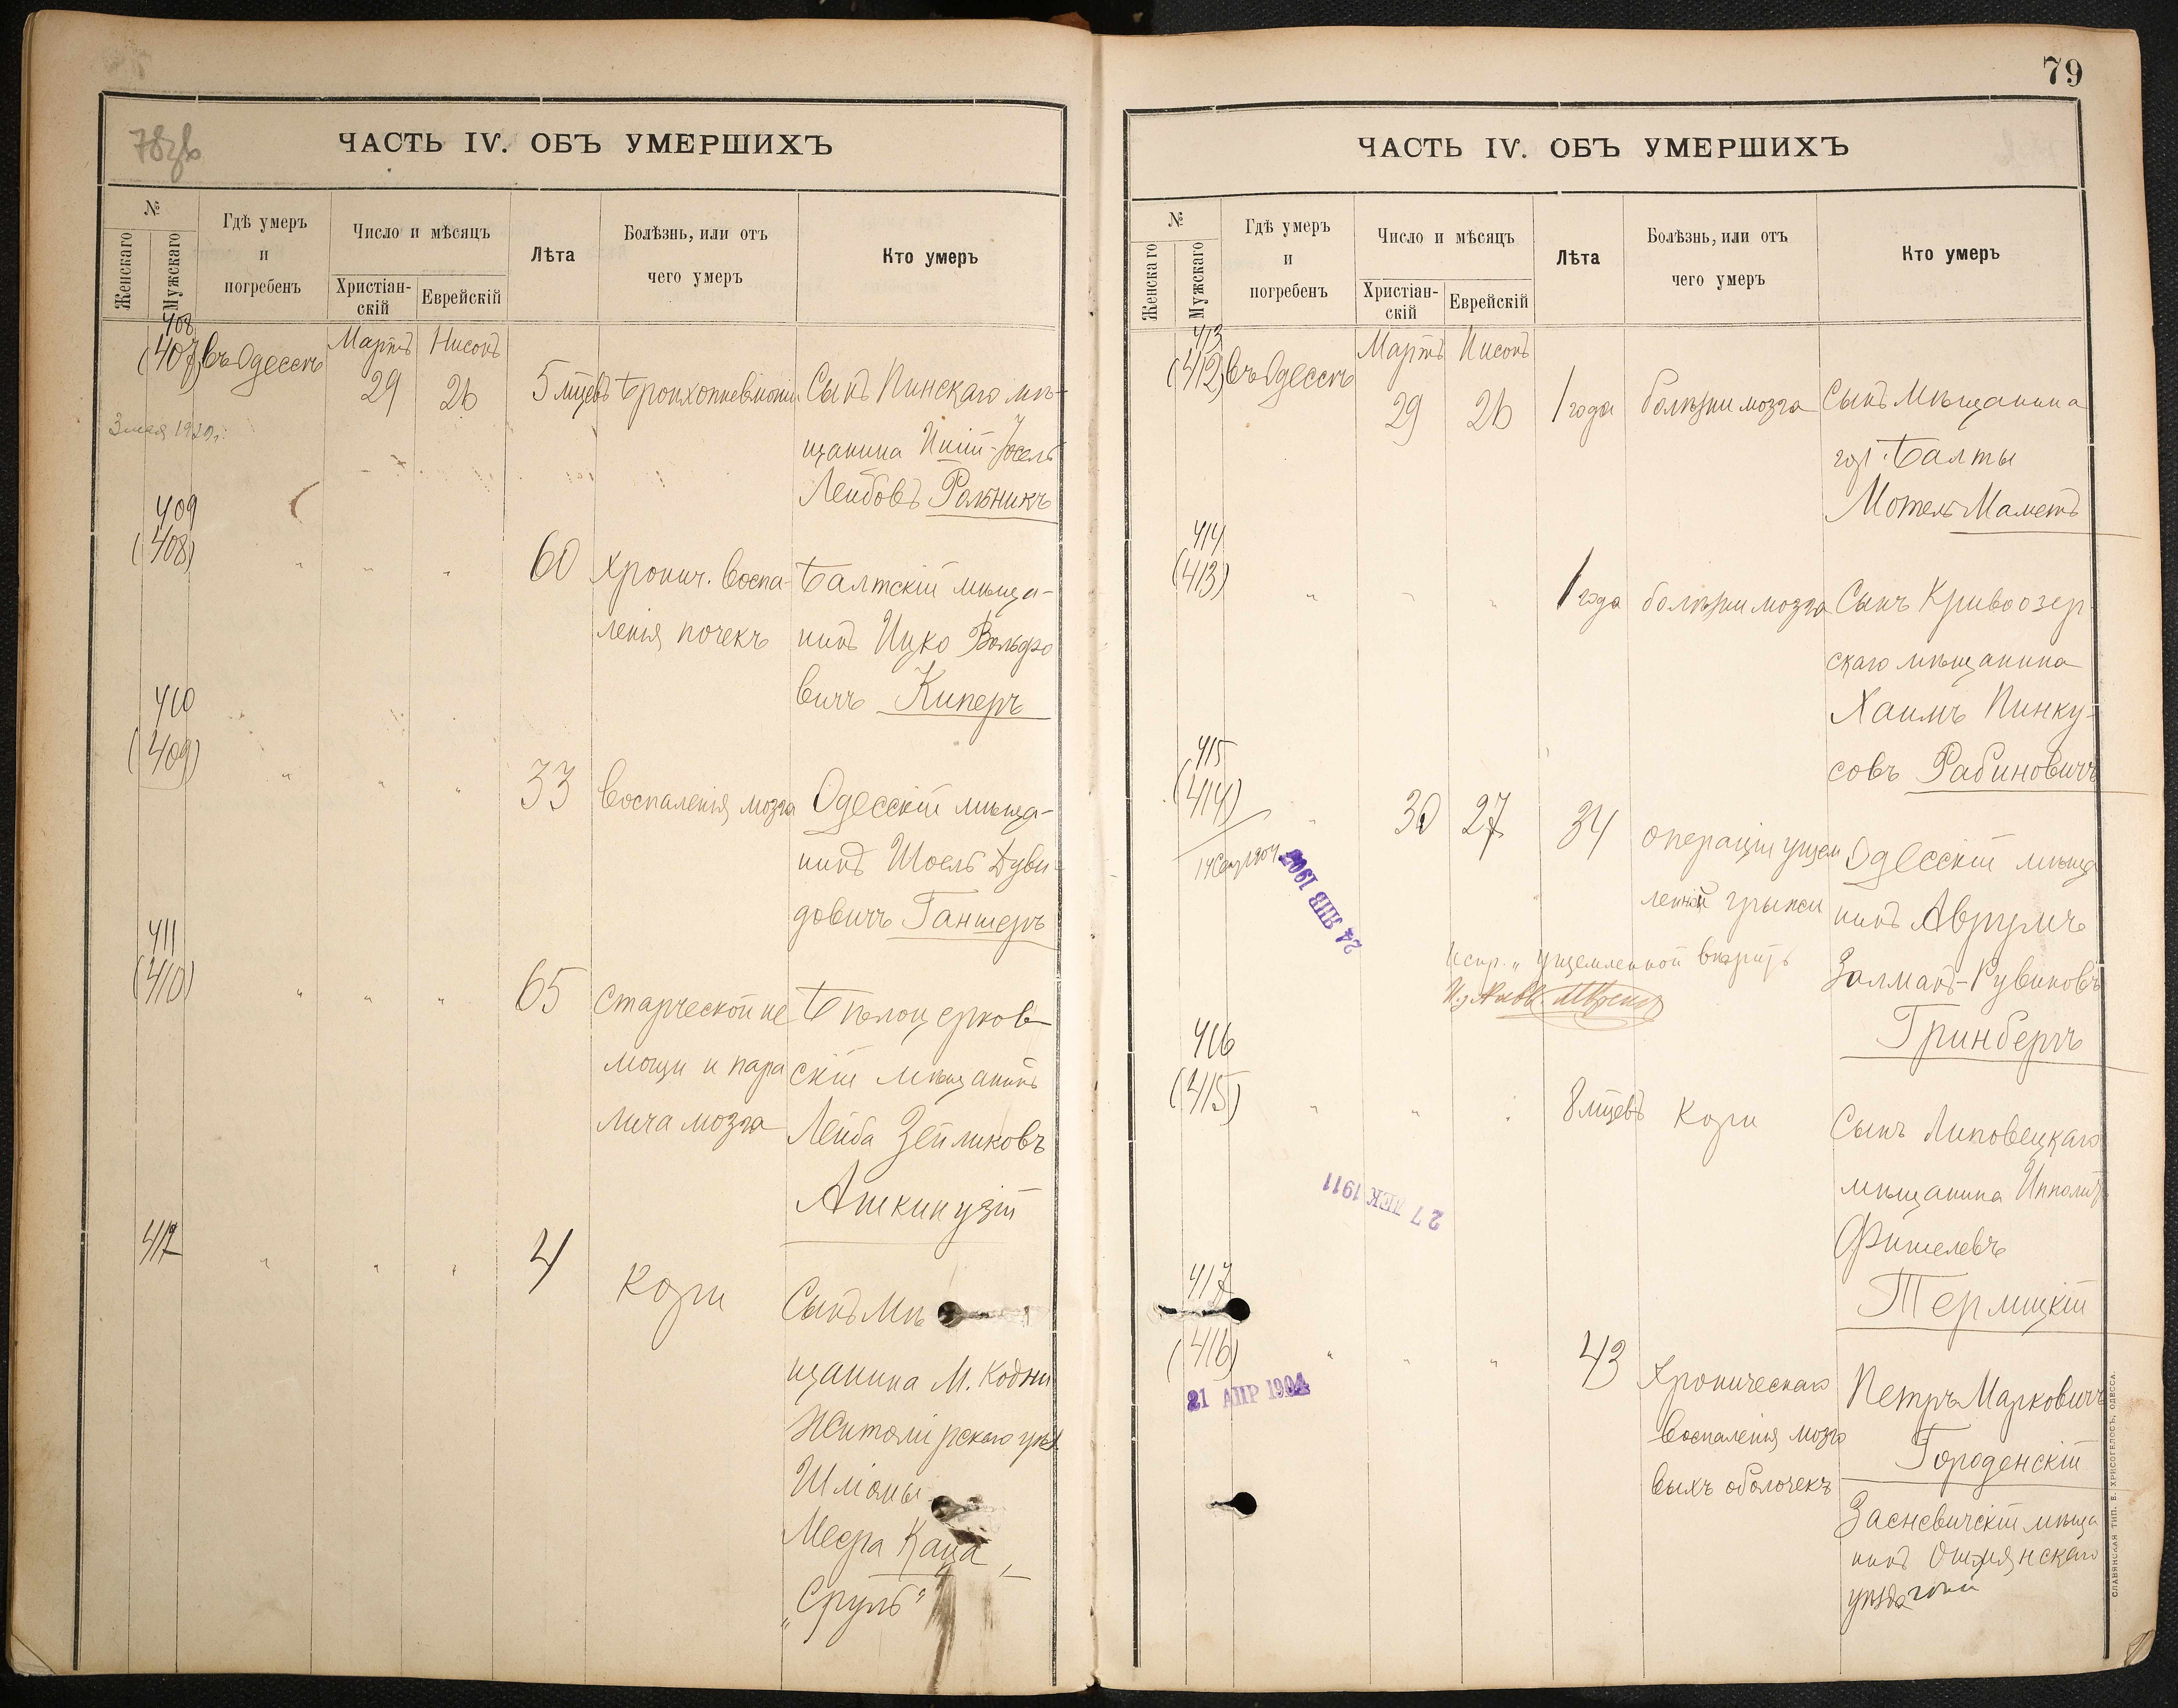 78зв
ЧАСТЬ IV. ОБЪ УМЕРШИХЪ
№
Женскаго
Мужскаго
Гдѣ умеръ
и
погребенъ
Число и мѣсяцъ
Христіан-
скій
Еврейскій
Лѣта
Болѣзнь, или отъ
чего умеръ
Кто умеръ
408
(407) въ Одессѣ
Мартъ Нисонъ
29 26
5 мцевъ
бронхопневмоніи
Сынъ Пинскаго мѣ-
щанина Іосель
Лейбовъ Рольникъ
409
(408)
" " "
60
хронич. воспа-
ленія почекъ
Балтскій мѣща-
нинъ Ицко Вольфо
вичъ Киперъ
410
(409)
" " "
33
воспаленія мозга
Одесскій мѣща-
нинъ Шоель Дуви-
довичъ Ганшеръ
411
(410)
" " "
65
старческой не
мощи и пара
лича мозга
Бѣлоцерков-
скій мѣщанинъ
Лейба Зейликовъ
Ашкинузій
412
" " "
4
кори
Сынъ Мѣ
щанина М. Кодни
Житомірскаго уѣз.
Шліомы
Меера Каца
"Сруль"
79
ЧАСТЬ IV. ОБЪ УМЕРШИХЪ
№
Женскаго
Мужскаго
Гдѣ умеръ
и
погребенъ
Число и мѣсяцъ
Христіан-
скій
Еврейскій
Лѣта
Болѣзнь, или отъ
чего умеръ
Кто умеръ
413
(412) въ Одессѣ
Мартъ Нисонъ
29 26
1 года
болѣзни мозга
Сынъ Мѣщанина
гор. Балты
Мотель Маметъ
414
(413)
" " "
1 года
болѣзни мозга
Сынъ Кривоозер-
скаго мѣщанина
Хаимъ Пинку-
совъ Рабиновичъ
415
(414)
"
30 27
34
операціи ущем
ленной грыжи
Одесскій мѣща
нинъ Аврумъ
Залманъ-Рувиновъ
Гринбергъ
24 ЯНВ 1907
испр. " ущемленной
416
(415)
" " "
8 мцевъ
кори
Сынъ Липовецкаго
мѣщанина Ипполитъ
Фишелевъ
Термицкій
27 ДЕК 1911
417
(416)
" " "
43
Хроническаго
воспаленія мозго
выхъ оболочекъ
Петръ Марковичъ
Городенскій
Засневичскій мѣща
нинъ Ошмянскаго
уѣзда
21 АПР 1904
СЛАВЯНСКАЯ ТИП. Е. ХРИСОГЕЛОСЪ, ОДЕССА.